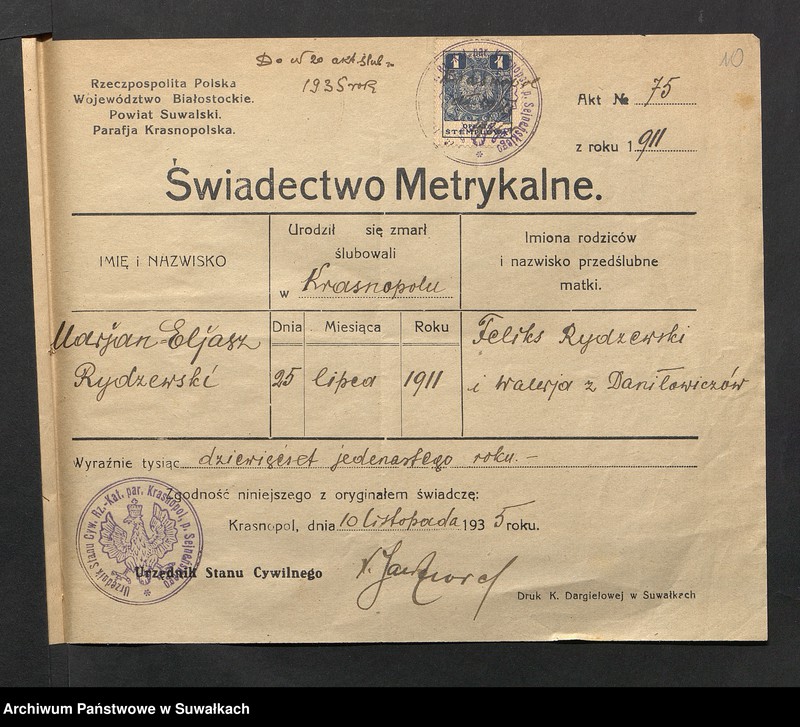 Do № 20 akt. ślub.
1935 rok
10
Rzeczpospolita Polska
Województwo Białostockie.
Powiat Suwalski.
Parafja Krasnopolska.
1 1
Akt № 75
z roku 1911
Świadectwo Metrykalne.
IMIĘ i NAZWISKO
Urodził się zmarł
ślubowali
w Krasnopolu
Imiona rodziców
i nazwisko przedślubne
matki.
Dnia Miesiąca Roku
Marjan-Eljasz
Rydzewski
25 lipca 1911
Feliks Rydzewski
i Walerja z Daniłowiczów
Wyraźnie tysiąc dziewięćset jedenastego roku.-
Zgodność niniejszego z oryginałem świadczę:
Krasnopol, dnia 10 listopada 1935 roku.
Urzędnik Stanu Cywilnego
Urzędnik Stanu Cyw. Rz.-Kat. par. Krasnopol, p. Sejneńskiego
Druk K. Dargielowej w Suwałkach
Archiwum Państwowe w Suwałkach